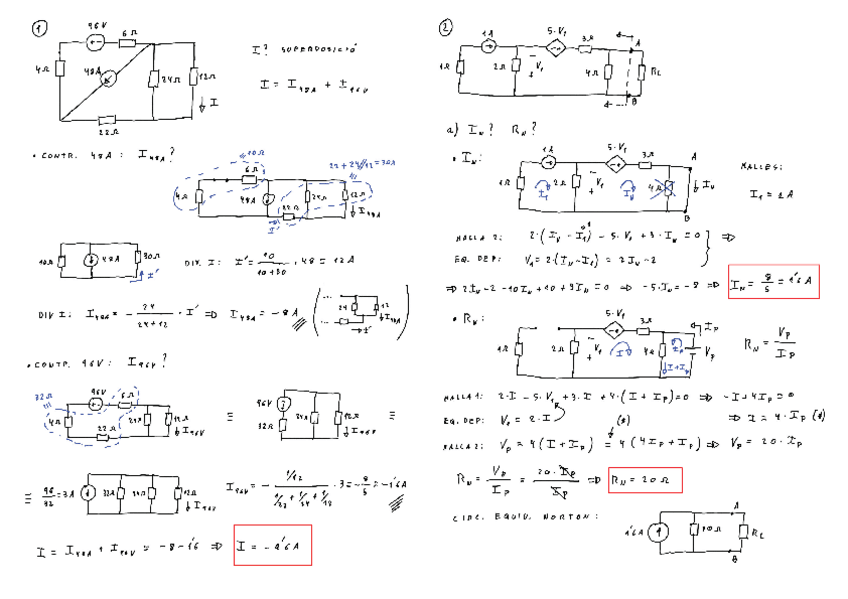 1
96V
6Ω
4Ω
48A
24Ω
12Ω
I
22Ω
I? SUPERPOSICIÓ
I = I48A + I96V
• CONTR. 48A: I48A?
10Ω
22+24//12=30Ω
6Ω
4Ω
48A
24Ω
12Ω
22Ω
I'
I48A
10Ω
48A
30Ω
I'
DIV. I: I' = 10/(10+30) · 48 = 12A
DIV I: I48A = - 24/(24+12) · I' ⇒ I48A = -8A
24
12
I48A
I'
• CONTR. 96V: I96V?
32Ω
96V
6Ω
4Ω
24Ω
12Ω
22Ω
I96V
≡
96V
32Ω
24Ω
12Ω
I96V
≡
≡ 96/32 = 3A
32Ω
24Ω
12Ω
I96V
I96V = - (1/12)/(1/32 + 1/24 + 1/12) · 3 = -8/5 = -1'6A
I = I48A + I96V = -8-1'6 ⇒ I = -9'6A
2
1A
5·V1
3Ω
A
1Ω
2Ω
V1
4Ω
RL
B
a) IN? RN?
• IN:
1A
5·V1
3Ω
A
1Ω
I1
2Ω
V1
IN
4Ω
IN
B
MALLES:
I1 = 1A
MALLA 2: 2·(IN - I1) - 5·V1 + 3·IN = 0
EQ. DEP: V1 = 2·(IN - I1) = 2IN - 2
⇒
⇒ 2IN - 2 - 10IN + 10 + 3IN = 0 ⇒ -5·IN = -8 ⇒ IN = 8/5 = 1'6A
• RN:
5·V1
3Ω
IP
1Ω
2Ω
V1
I
4Ω
IP
VP
I+IP
RN = VP/IP
MALLA 1: 2·I - 5·V1 + 3·I + 4·(I + IP) = 0 ⇒ -I + 4IP = 0
EQ. DEP: V1 = 2·I (*) ⇒ I = 4·IP (*)
MALLA 2: VP = 4(I + IP) = 4(4IP + IP) ⇒ VP = 20·IP
RN = VP/IP = 20·IP/IP ⇒ RN = 20Ω
CIRC. EQUIV. NORTON:
1'6A
RL
A
B